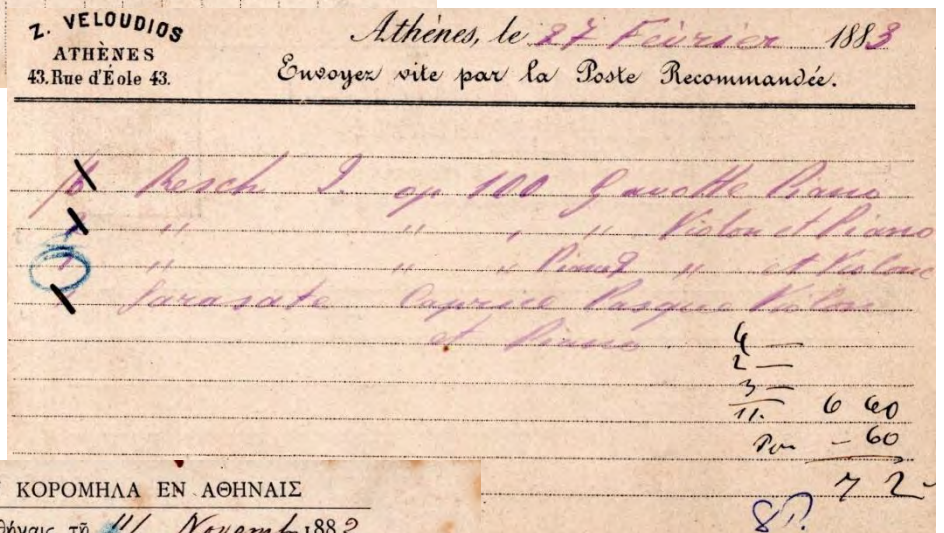 Z. VELOUDIOS
ATHÈNES
43. Rue d'Éole 43.
Athènes, le 27 Février 1883
Envoyez vite par la Poste Recommandée.
Resch J. op 100 Gavotte Piano
" " " " Violon et Piano
" " " Piano " et Violon
Sarasate Caprice Basque Violon
et Piano
4 —
2 —
5 —
11. 6 60
— 60
7 2-
ΚΟΡΟΜΗΛΑ ΕΝ ΑΘΗΝΑΙΣ
θήναις τῇ Novemb 188